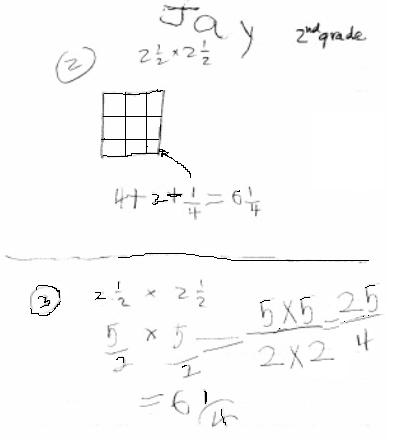 Jay 2nd grade
② 2 1/2 × 2 1/2
4 + 2 + 1/4 = 6 1/4
③ 2 1/2 × 2 1/2
5/2 × 5/2 = 5×5/2×2 = 25/4
= 6 1/4